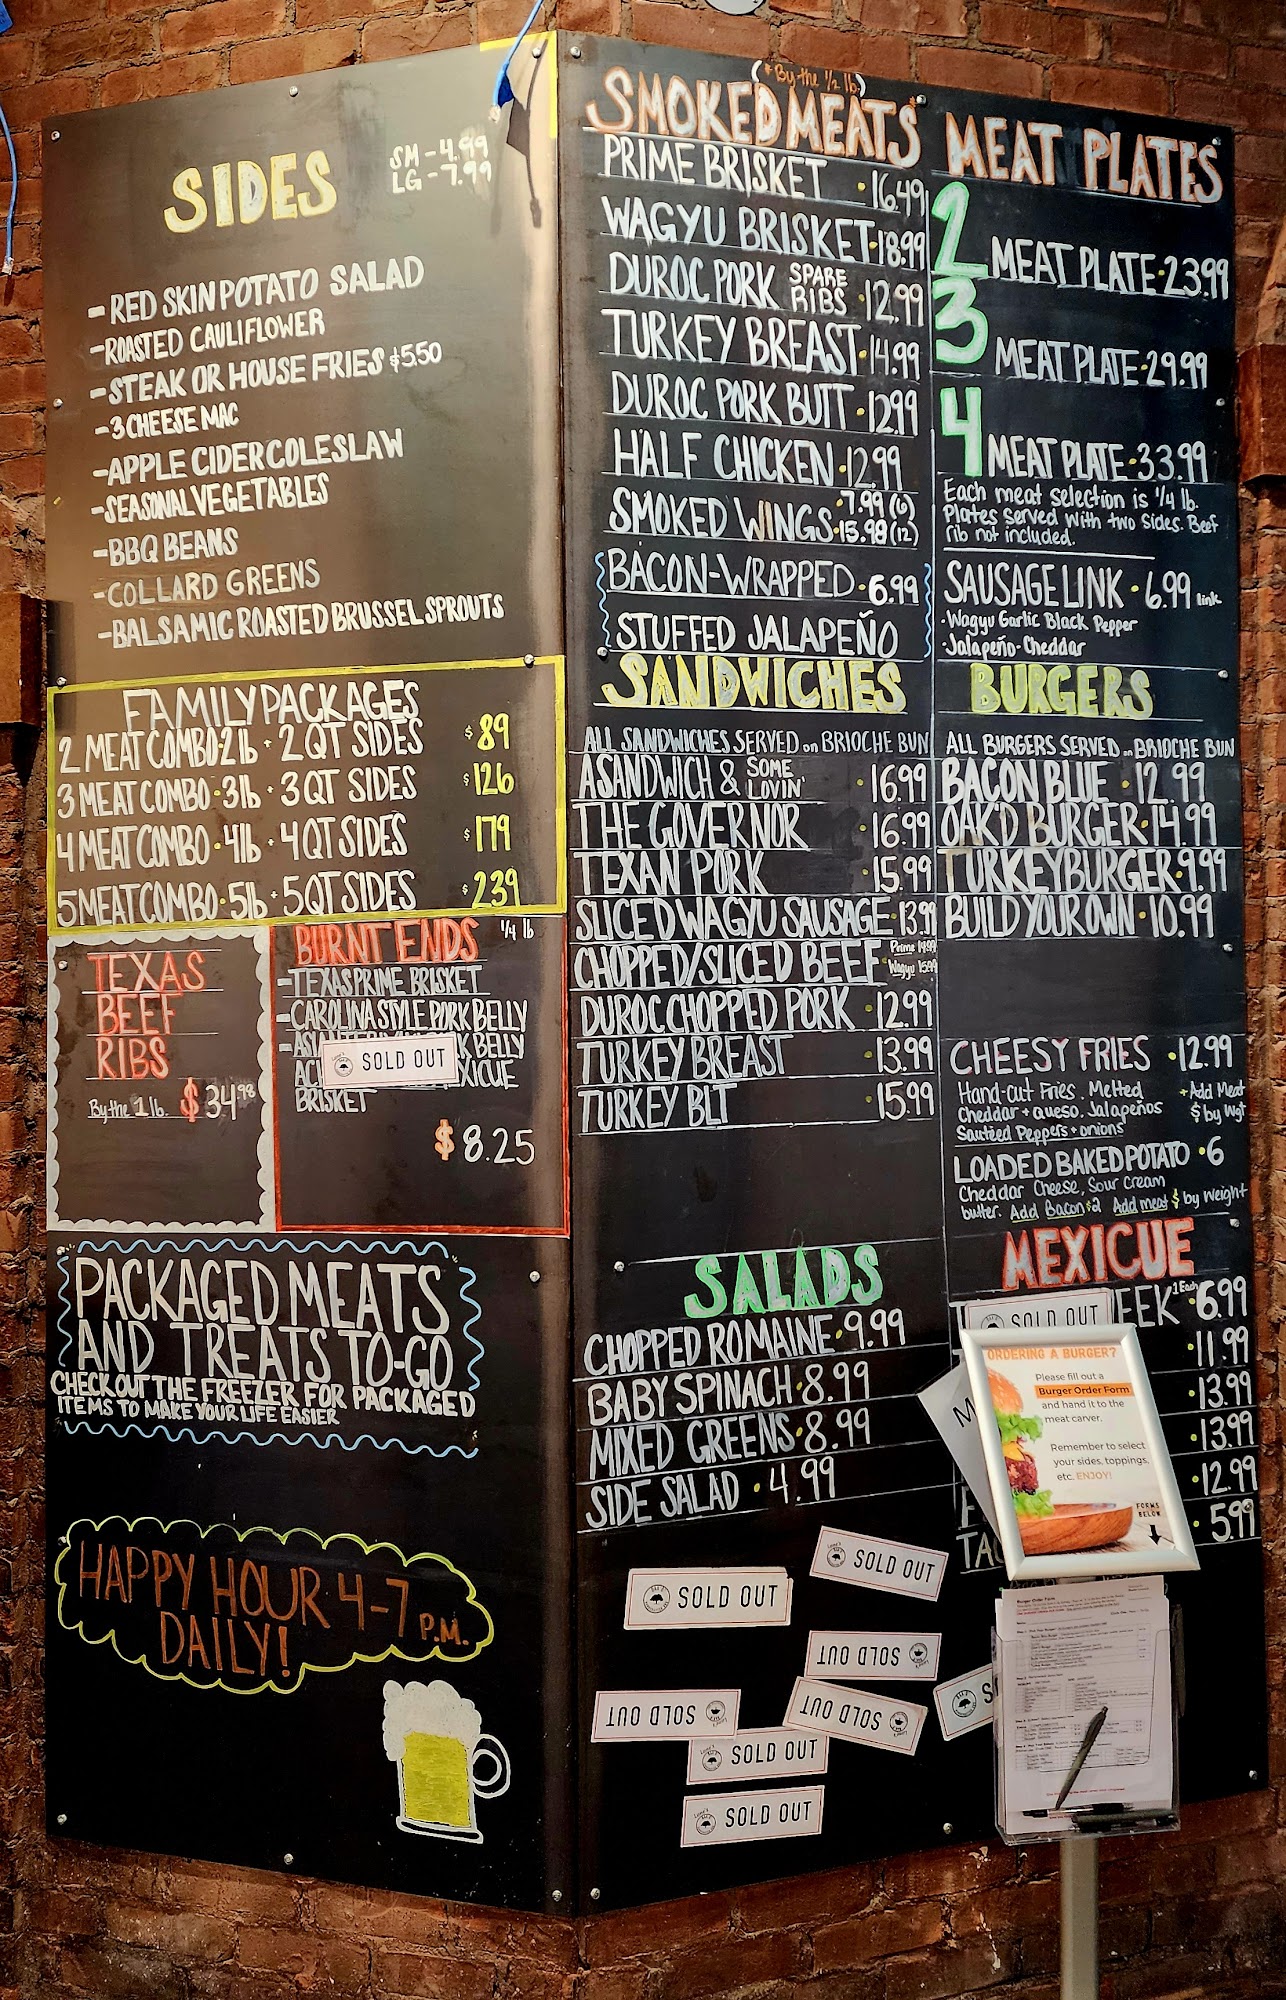 SIDES
SM - 4.99
LG - 7.99
- RED SKIN POTATO SALAD
- ROASTED CAULIFLOWER
- STEAK OR HOUSE FRIES $5.50
- 3 CHEESE MAC
- APPLE CIDER COLESLAW
- SEASONAL VEGETABLES
- BBQ BEANS
- COLLARD GREENS
- BALSAMIC ROASTED BRUSSEL SPROUTS
FAMILY PACKAGES
2 MEAT COMBO · 2lb · 2 QT SIDES $89
3 MEAT COMBO · 3lb · 3 QT SIDES $126
4 MEAT COMBO · 4lb · 4 QT SIDES $179
5 MEAT COMBO · 5lb · 5 QT SIDES $239
TEXAS
BEEF
RIBS
By the 1 lb. $34.98
BURNT ENDS 1/4 lb
- TEXAS PRIME BRISKET
- CAROLINA STYLE PORK BELLY
BELLY
SOLD OUT
BRISKET
$8.25
PACKAGED MEATS
AND TREATS TO-GO
CHECK OUT THE FREEZER FOR PACKAGED
ITEMS TO MAKE YOUR LIFE EASIER
HAPPY HOUR 4-7 P.M.
DAILY!
(* By the 1/2 lb.)
SMOKED MEATS
PRIME BRISKET · 16.49
WAGYU BRISKET · 18.99
DUROC PORK SPARE RIBS · 12.99
TURKEY BREAST · 14.99
DUROC PORK BUTT · 12.99
HALF CHICKEN · 12.99
SMOKED WINGS · 7.99 (6)
15.98 (12)
BACON-WRAPPED · 6.99
STUFFED JALAPEÑO
SANDWICHES
ALL SANDWICHES SERVED on BRIOCHE BUN
A SANDWICH & SOME LOVIN' · 16.99
THE GOVERNOR · 16.99
TEXAN PORK · 15.99
SLICED WAGYU SAUSAGE · 13.99
CHOPPED/SLICED BEEF Prime
Wagyu 15.99
DUROC CHOPPED PORK · 12.99
TURKEY BREAST · 13.99
TURKEY BLT · 15.99
SALADS
CHOPPED ROMAINE · 9.99
BABY SPINACH · 8.99
MIXED GREENS · 8.99
SIDE SALAD · 4.99
SOLD OUT
SOLD OUT
SOLD OUT
SOLD OUT
SOLD OUT
SOLD OUT
SOLD OUT
MEAT PLATES
2 MEAT PLATE · 23.99
3 MEAT PLATE · 29.99
4 MEAT PLATE · 33.99
Each meat selection is 1/4 lb.
Plates served with two sides. Beef
rib not included.
SAUSAGE LINK · 6.99 link
· Wagyu Garlic Black Pepper
· Jalapeño-Cheddar
BURGERS
ALL BURGERS SERVED on BRIOCHE BUN
BACON BLUE · 12.99
OAK'D BURGER · 14.99
TURKEY BURGER · 9.99
BUILD YOUR OWN · 10.99
CHEESY FRIES · 12.99
Hand-Cut Fries. Melted
Cheddar + queso. Jalapeños
Sautéed Peppers + onions
+ Add Meat
$ by Wgt
LOADED BAKED POTATO · 6
Cheddar Cheese, Sour Cream
butter. Add Bacon $2 Add meat $ by weight
MEXICUE
SOLD OUT
EEK 1 Each · 6.99
· 11.99
· 13.99
· 13.99
· 12.99
· 5.99
ORDERING A BURGER?
Please fill out a
Burger Order Form
and hand it to the
meat carver.
Remember to select
your sides, toppings,
etc. ENJOY!
FORMS
BELOW
Burger Order Form